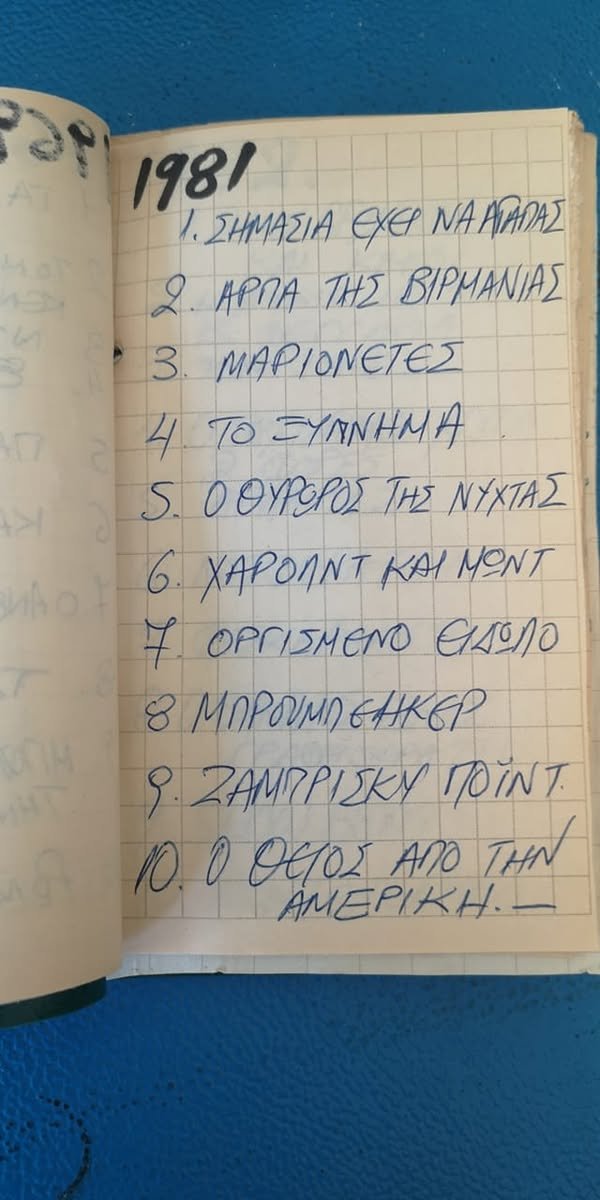 1981
1. ΣΗΜΑΣΙΑ ΕΧΕΙ ΝΑ ΑΓΑΠΑΣ
2. ΑΡΠΑ ΤΗΣ ΒΙΡΜΑΝΙΑΣ
3. ΜΑΡΙΟΝΕΤΕΣ
4 ΤΟ ΞΥΠΝΗΜΑ
5. Ο ΘΥΡΩΡΟΣ ΤΗΣ ΝΥΧΤΑΣ
6. ΧΑΡΟΛΝΤ ΚΑΙ ΜΩΝΤ
7. ΟΡΓΙΣΜΕΝΟ ΕΙΔΩΛΟ
8 ΜΠΡΟΥΜΠΕΗΚΕΡ
9. ΖΑΜΠΡΙΣΚΥ ΠΟΪΝΤ.
10. Ο ΘΕΙΟΣ ΑΠΟ ΤΗΝ
ΑΜΕΡΙΚΗ. —